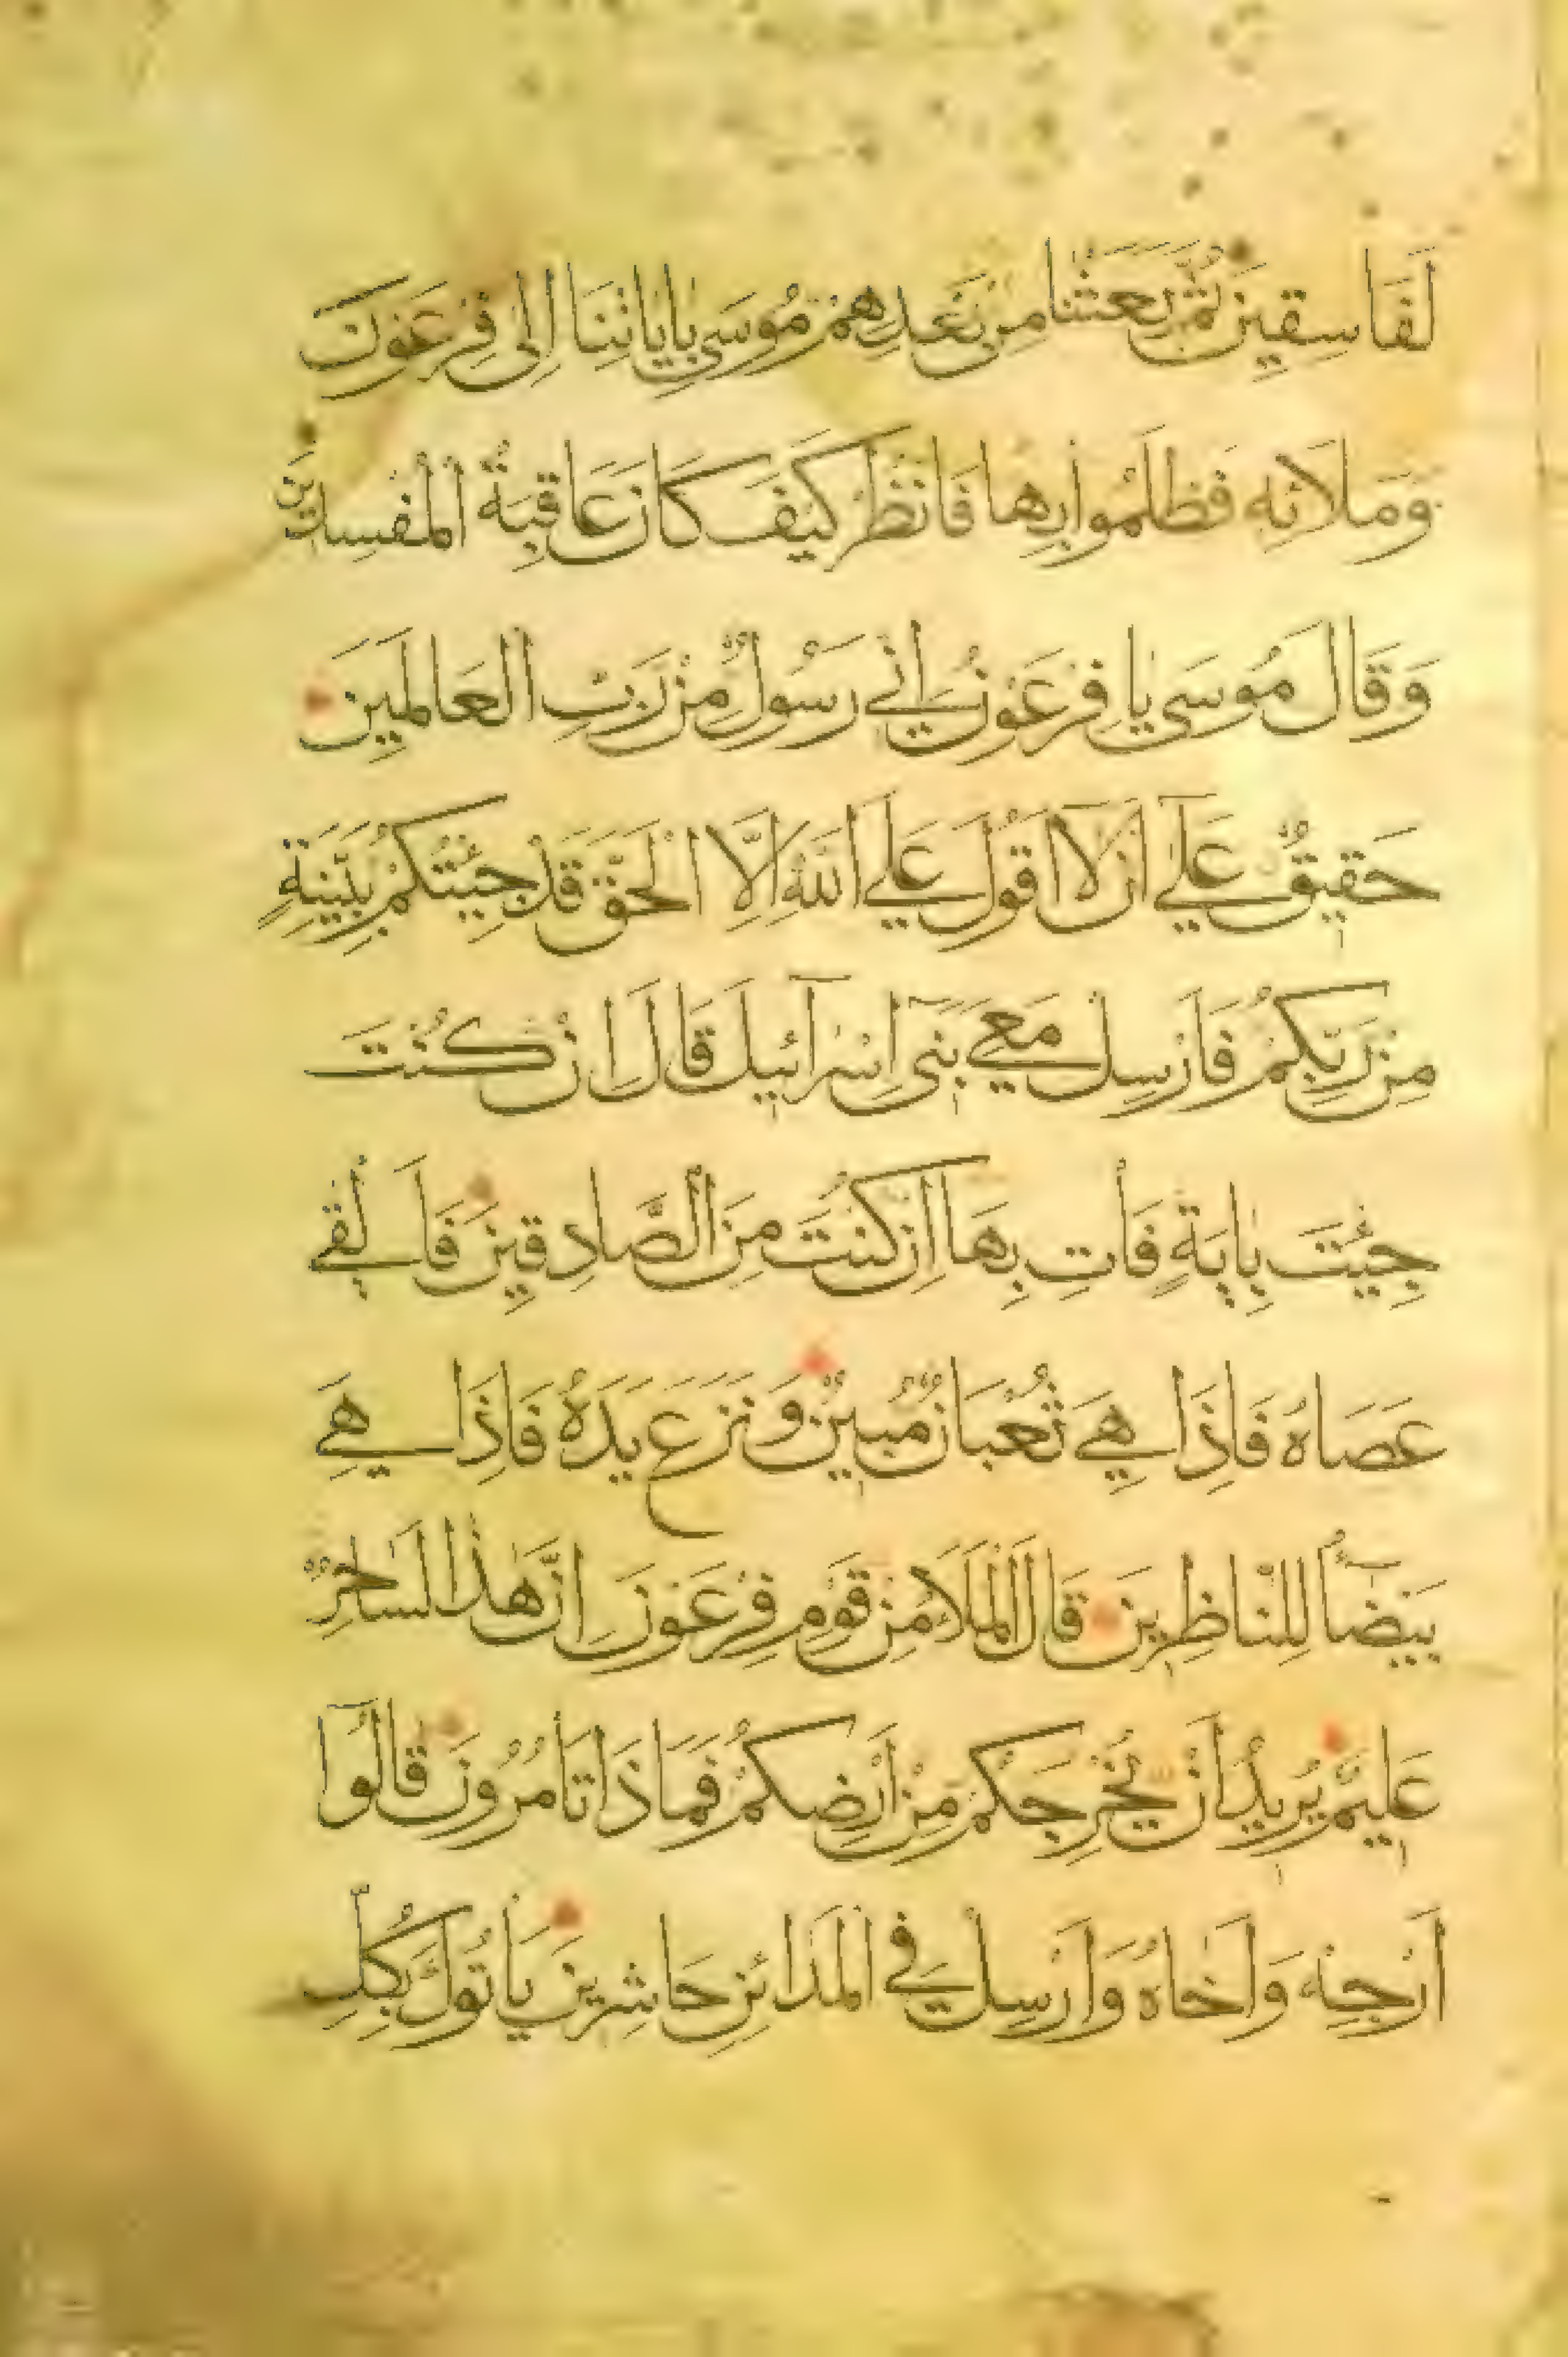 لَفَاسِقِينَ ثُمَّ بَعَثْنَا مِنْ بَعْدِهِمْ مُوسَى بِايَاتِنَا اِلَى فِرْعَوْنَ
وَمَلَائِهِ فَظَلَمُوا بِهَا فَانْظُرْ كَيْفَ كَانَ عَاقِبَةُ الْمُفْسِدِينَ
وَقَالَ مُوسَى يَا فِرْعَوْنُ اِنِّي رَسُولٌ مِنْ رَبِّ الْعَالَمِينَ
حَقِيقٌ عَلَى اَنْ لَا اَقُولَ عَلَى اللهِ اِلَّا الْحَقَّ قَدْ جِئْتُكُمْ بِبَيِّنَةٍ
مِنْ رَبِّكُمْ فَاَرْسِلْ مَعِيَ بَنِي اِسْرَآئِيلَ قَالَ اِنْ كُنْتَ
جِئْتَ بِايَةٍ فَأْتِ بِهَا اِنْ كُنْتَ مِنَ الصَّادِقِينَ فَاَلْقَى
عَصَاهُ فَاِذَا هِيَ ثُعْبَانٌ مُبِينٌ وَنَزَعَ يَدَهُ فَاِذَا هِيَ
بَيْضَآءُ لِلنَّاظِرِينَ قَالَ الْمَلَاُ مِنْ قَوْمِ فِرْعَوْنَ اِنَّ هٰذَا لَسَاحِرٌ
عَلِيمٌ يُرِيدُ اَنْ يُخْرِجَكُمْ مِنْ اَرْضِكُمْ فَمَاذَا تَأْمُرُونَ قَالُوا
اَرْجِهْ وَاَخَاهُ وَاَرْسِلْ فِي الْمَدَائِنِ حَاشِرِينَ يَأْتُوكَ بِكُلِّ